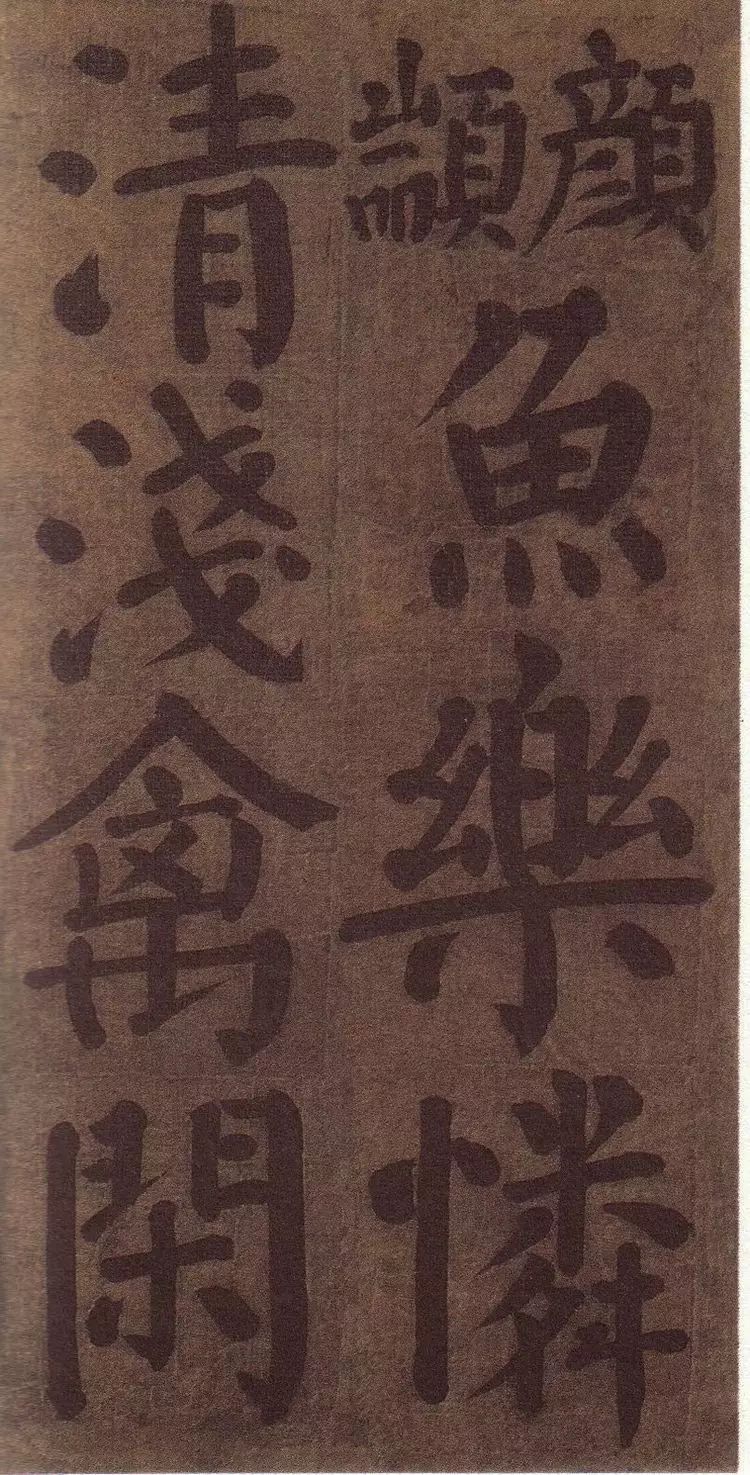 顏顓
魚樂憐
清淺禽閑